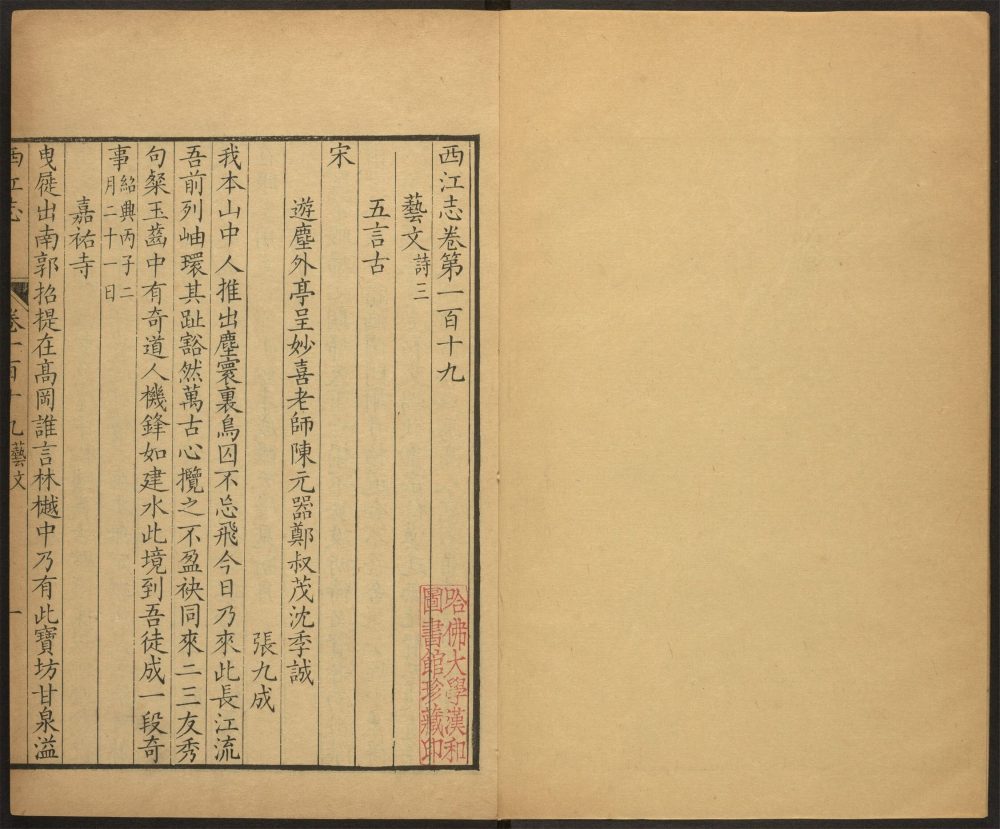 西江志卷第一百十九
藝文詩三
五言古
宋
遊塵外亭呈妙喜老師陳元器鄭叔茂沈季誠
張九成
我本山中人推出塵寰裏鳥囚不忘飛今日乃來此長江流
吾前列岫環其趾豁然萬古心攬之不盈袂同來二三友秀
句粲玉齒中有奇道人機鋒如建水此境到吾徒成一段奇
事紹興丙子二
月二十一日
嘉祐寺
曳屣出南郭招提在高岡誰言林樾中乃有此寶坊甘泉溢
西江志 卷一百十九藝文 一
哈佛大學漢和
圖書館珍藏印